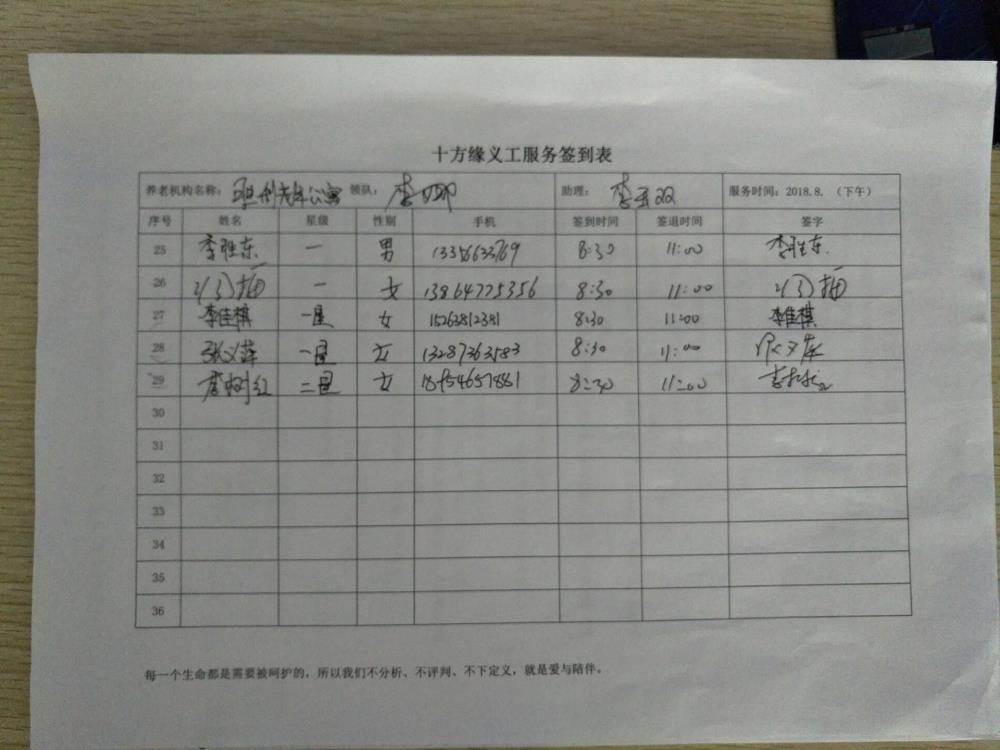 十方缘义工服务签到表
养老机构名称： 老年公寓 领队：李 助理：李 双 服务时间：2018.8.（下午）
序号 姓名 星级 性别 手机 签到时间 签退时间 签字
25 李胜东 一 男 13356633769 8:30 11:00 李胜东
26 一 女 13864775356 8:30 11:00
27 李佳棋 一星 女 15263812381 8:30 11:00 李佳棋
28 张义萍 一星 女 13287363583 8:30 11:00
29 李树红 二星 女 18954657881 8:30 11:00
30
31
32
33
34
35
36
每一个生命都是需要被呵护的，所以我们不分析、不评判、不下定义，就是爱与陪伴。